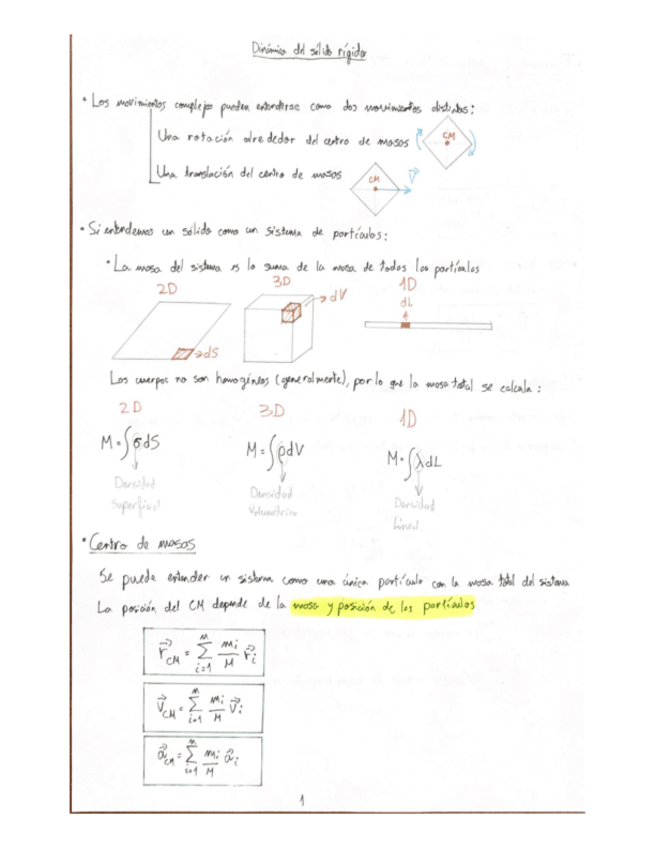 Dinámica del sólido rígido
• Los movimientos complejos pueden entenderse como dos movimientos distintos:
Una rotación alrededor del centro de masas
CM
Una translación del centro de masas
CM
V
• Si entendemos un sólido como un sistema de partículas:
• La masa del sistema es la suma de la masa de todas las partículas
2D 3D 1D
dS dV dL
Los cuerpos no son homogéneos (generalmente), por lo que la masa total se calcula:
2D 3D 1D
M = ∫σdS M = ∫ρdV M = ∫λdL
Densidad Superficial
Densidad Volumétrica
Densidad Lineal
• Centro de masas
Se puede entender un sistema como una única partícula con la masa total del sistema
La posición del CM depende de la masa y posición de las partículas
r⃗CM = Σ i=1 n mi/M r⃗i
v⃗CM = Σ i=1 n mi/M v⃗i
a⃗CM = Σ i=1 n mi/M a⃗i
1